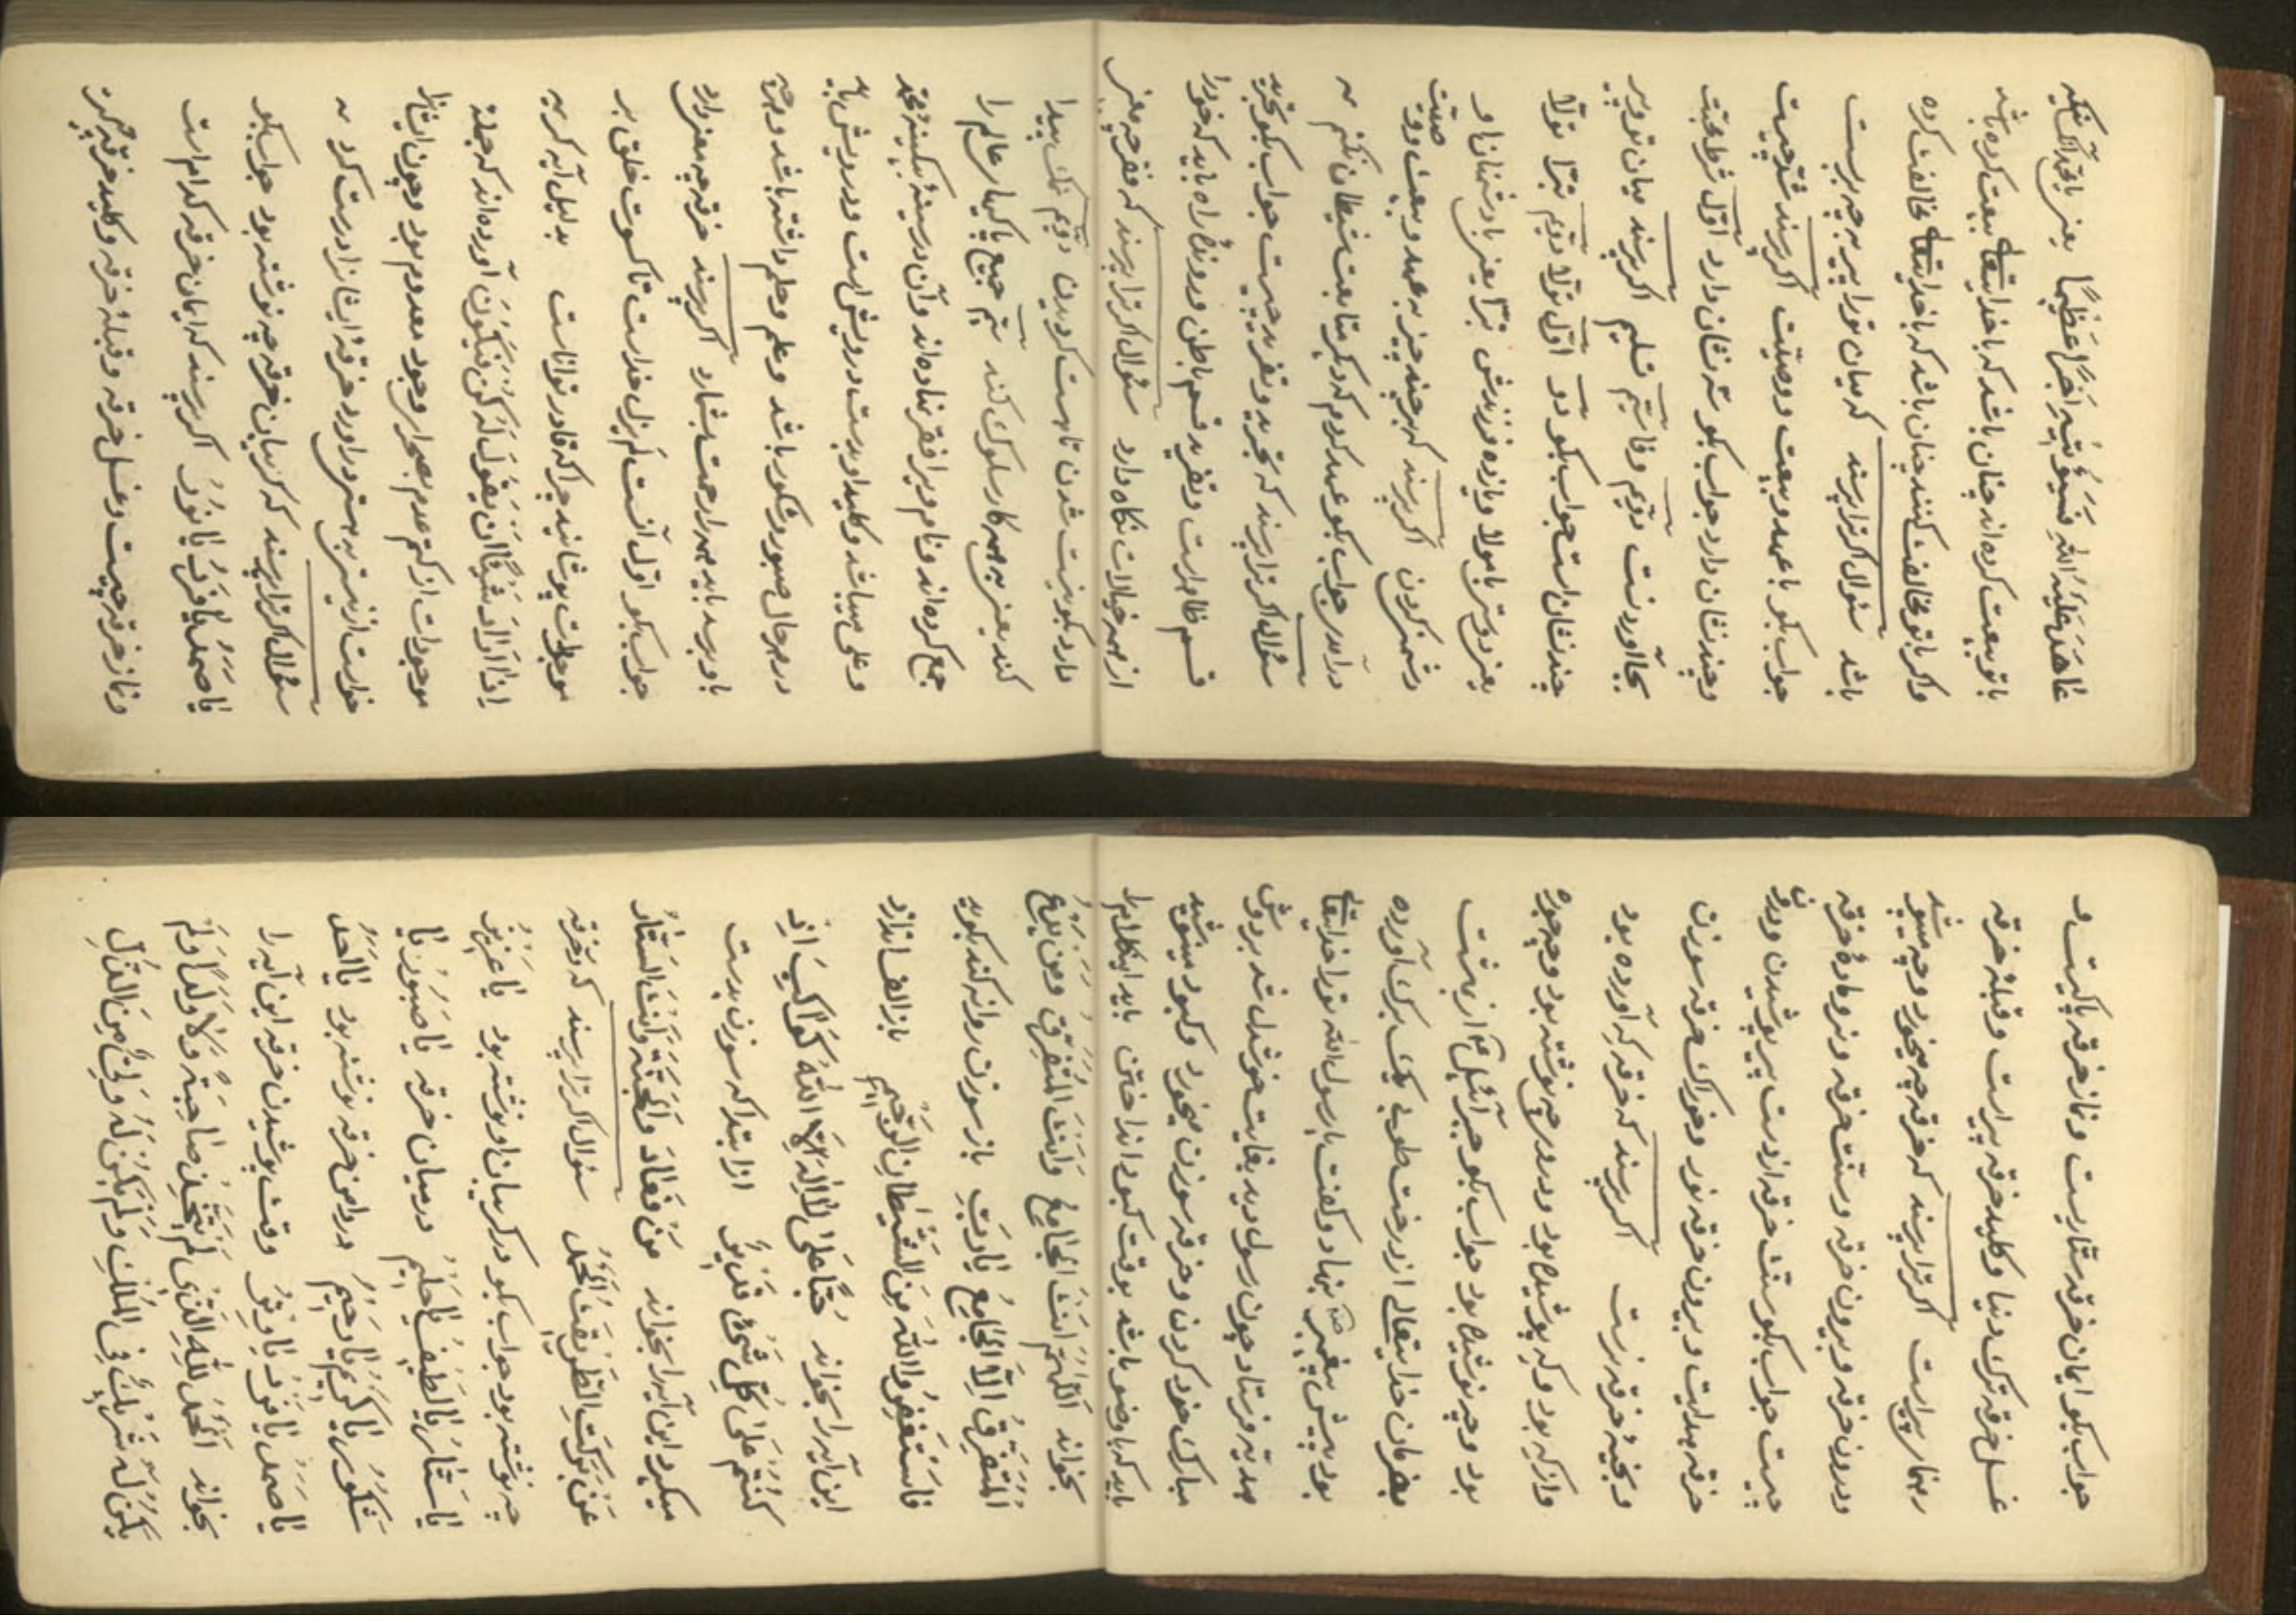 عَاهَدَ عَلَيْهُ اللّٰهَ فَسَيُؤْتِيهِ اَجْرًا عَظِيمًا يعنى بانچه آنكسيكه
با تو بيعت كرده اند چنان باشد كه با خدايتعالى بيعت كرده باشد
و اكر با تو مخالفت كنند چنان باشد كه با خدايتعالى مخالفت كرده
باشد سئوال اكر ترا پرسند كه ميان تو و پير به چه پيرست
جواب بكو با عهد و بيعت و وصيّت اكر پرسند شرط چيست
و چند نشان دارد جواب بكو سه نشان دارد اوّل شرط محبّت
بجا آوردنست دويّم وفا سيّم تسليم اكر پرسند ميان تو و پير
چند نشان است جواب بكو دو اوّل تولّا دويّم تبرّا تولّا
يعنى دوستى با مولا و يازده فرزندش تبرّا يعنى با دشمنان او
دشمنى كردن اكر پرسند كه بر چند چيز به عهد و بيعت و وصيّت
در آمدى جواب بكو عهد كردم كه ديكر متابعت شيطان نكنم
سئوال اكر ترا پرسند كه تجريد و تفريد چيست جواب بكو تجريد
قسم ظاهر است و تفريد قسم باطن و درونى راه بايد كه خود را
از همه خيالات نكاه دارد سئوال اكر ترا پرسند كه فقر چه معنى
دارد بكو نيست شدن تا هست كرديدن دويّم نيك پيدا
كند يعنى به همه كار سلوك كند سيّم جميع پاكيها عالم را
جمع كرده اند و نام ويرا فقر نهاده اند و آن در سينه بيكينه محمّد
و على ميباشد و كليد او بدست درويش است و درويش بايد
در همه حال صبور و شكور باشد و علم و حلم داشته باشد و هرچه
باو برسد بايد همه را رحمت شمارد اكر پرسند خرقه چه معنى دارد
جواب بكو اوّل آنست لم يزل خداست تا كسوت خلق بر
موجودات پوشانيد چرا كه قادر تواناست بدليل آيه كريمه
اِذَا اَرَادَ شَيْئًا اَنْ يَقُولَ لَهُ كُنْ فَيَكُونُ آورده اند كه جملهٔ
موجودات از كتم عدم بصحرا وجود معدوم بود و چون ايشانرا
خواست از نيستى به هستى در آورد خرقهٔ ايشانرا درست كرد
سئوال اكر ترا پرسند كه كريبان خرقه چه نوشته بود جواب بكو
يَا صَمَدُ يَا فَرْدُ يَا نُورُ اكر پرسند كه ايمان خرقه كدام است
و نماز خرقه چيست و غسل خرقه و قبلهٔ خرقه و كليد خرقه چيست
جواب بكو ايمان خرقه ستاريست و نماز خرقه پاكيست و
غسل خرقه ترك دنيا و كليد خرقه پيراست و قبلهٔ خرقه
رهنما پيراست اكر ترا پرسند كه خرقه چه ميخورد و چه ميپوشد
و درون خرقه و بيرون خرقه و سنّت خرقه و نر و مادهٔ خرقه
چيست جواب بكو سنّت خرقه از دست پير پوشيدن و درون
خرقه هدايت و بيرون خرقه نور و خوراك خرقه سوزن
و بخيهٔ خرقه نرست اكر پرسند كه خرقه كه آورده بود
و از كه بود و كه پوشيده بود و در او چه نوشته بود و چه چوره
بود و چه نوشيده بود جواب بكو جبرائيل آنرا از بهشت
بفرمان خدايتعالى از درخت طوبى يك برك آورده
بود پيش پيغمبر نهاد و كفت يا رسول اللّه تو را خدايتعالى
هديه فرستاد چون رسول ديد بغايت خوشدل شد بر دوش
مبارك خود كردن و خرقه سوزن ميخورد و كبود ميپوشيد
بايد كه با وضو باشد بوقت كبود انداختن بايد اينكلام را
بخواند اَللّٰهُمَّ اَنْتَ الْجَامِعُ وَ اَنْتَ الْمُتَفَرِّقِ وَ مَنْ يَدَعِ
الْمُتَفَرِّقِ اِلَّا الْجَامِعُ يَا رَبِّ باز سوزن روانه كند بكويد
فَاسْتَغْفِرُ وَاللّٰهَ مِنَ الشَّيْطَانِ الرَّجِيمِ باز الف اندازد
اين آيه را بخواند حُبًّا عَلَىٰ لَا اِلٰهَ اِلَّا اللّٰهُ كَوَاكِبَ اِنِّي
كُنْتُمْ عَلَىٰ كُلِّ شَيْءٍ قَدِيرٌ از ابتدا كه سوزن بدست
ميكيرد اين آيه را بخواند مَنْ فَعَادَ وَ الْمُحَبَّةِ وَ اَنْتَ السَّتَّارُ
عَنْ بَرَكَتِ الطَّرِيقَتِ الْحَمْدُ سئوال اكر ترا پرسند كه در خرقه
چه نوشته بود جواب بكو در كريبان او نوشته بود يَا عَزِيزُ
يَا سَتَّارُ يَا لَطِيفُ يَا حَلِيمُ در ميان خرقه يَا صَبُورُ يَا
شَكُورُ يَا كَرِيمُ يَا رَحِيمُ در دامن خرقه نوشته بود يَا اَحَدُ
يَا صَمَدُ يَا فَرْدُ يَا وِتْرُ وقت پوشيدن خرقه اين آيه را
بخواند اَلْحَمْدُ لِلّٰهِ الَّذِى لَمْ يَتَّخِذْ صَاحِبَةً وَ لَا وَلَدًا وَ لَمْ
يَكُنْ لَهُ شَرِيكٌ فِى الْمُلْكِ وَ لَمْ يَكُنْ لَهُ وَلِيٌّ مِنَ الذُّلِّ